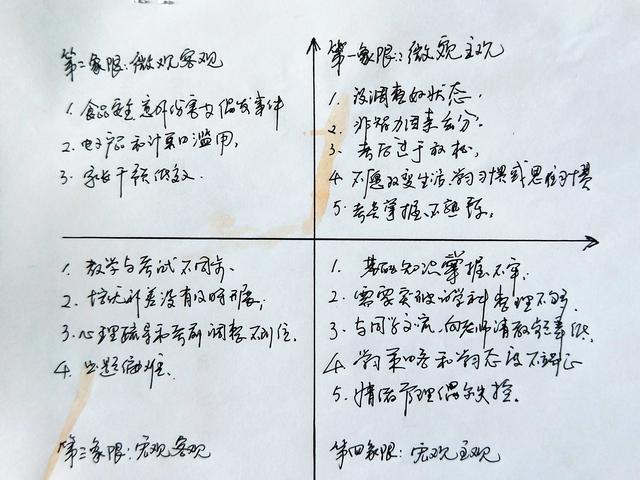 第二象限:微观客观
1. 食品安全意外伤害及偶发事件
2. 电子产品和计算口滥用,
3. 家长干预
第一象限:微观主观
1. 没调整好状态,
2. 非智力因素丢分.
3. 考后过于放松,
4. 不愿改变生活、学习习惯或思维习惯
5. 考点掌握不熟练,
1. 教学与考试不同步、
2. 培优补差没有及时开展;
3. 心理疏导和考前调整不到位
4. 出题偏难.
第三象限:宏观客观
1. 基础知识掌握不牢.
2. 需要突破的学科整理不够,
3. 与同学交流、向老师请教
4. 学习策略和学习态度不端正
5. 情绪管理偶尔失控.
第四象限:宏观主观